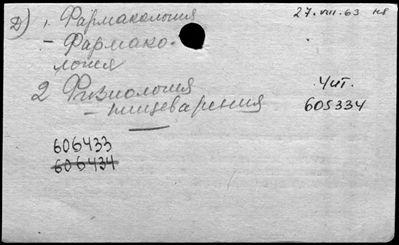 Д) 1. Фармакология 27.VIII.63 НЯ
- Фармако-
логия
2 Физиология Чит.
- пищеварения 605334
606433
606434